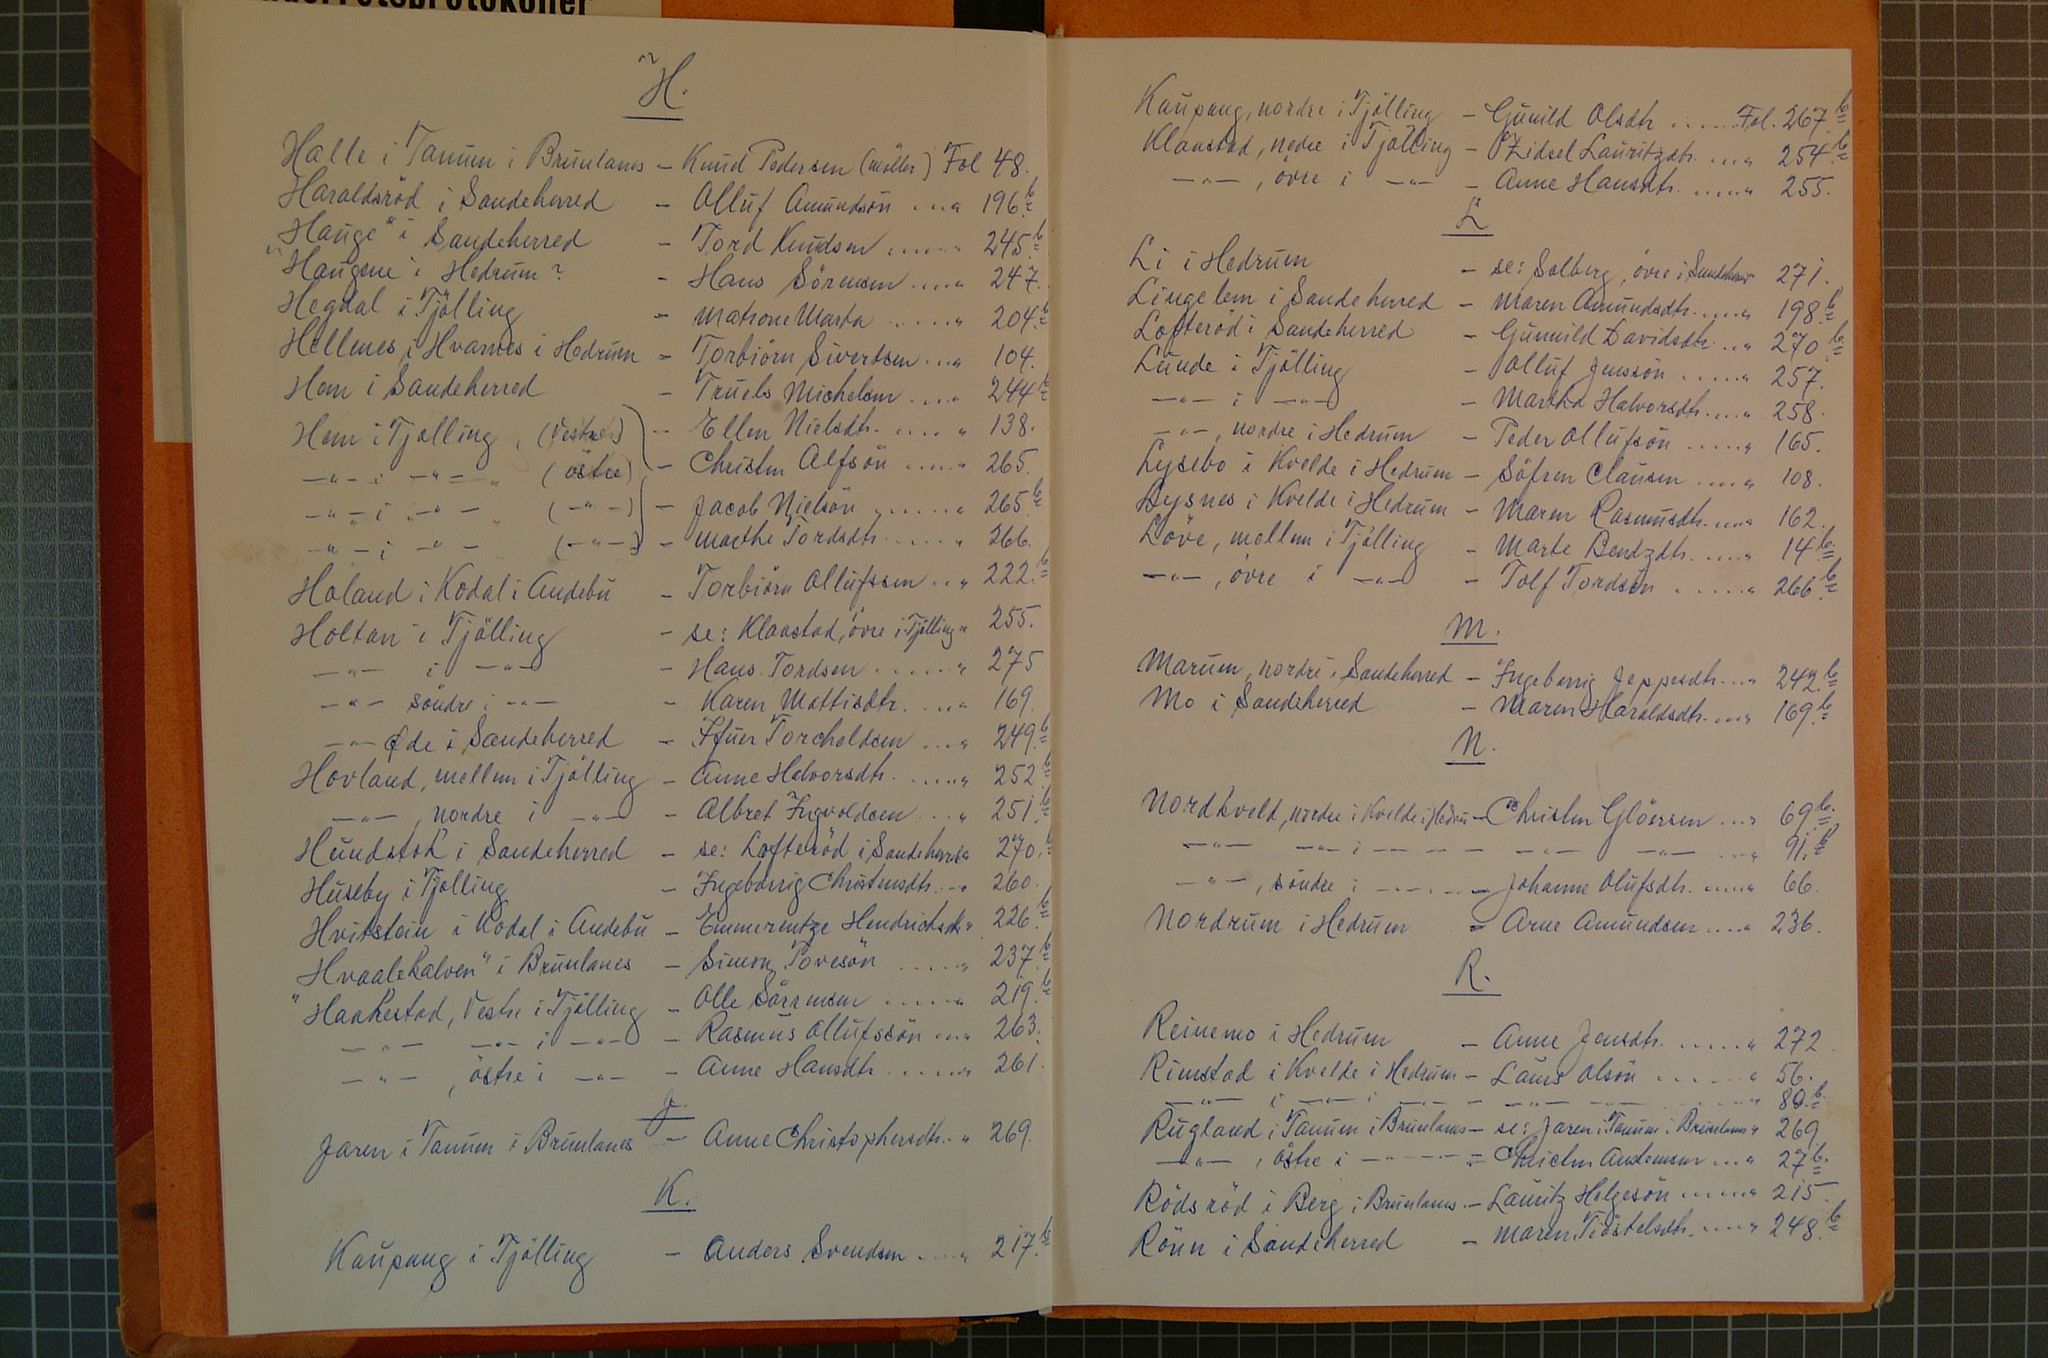 H.
Halle i Tanum i Brunlanes - Knud Pedersen (möller) Fol 48.
Haraldsröd i Sandeherred - Olluf Amundsön ...." 196.b
"Hauge" i Sandeherred - Tord Knudsen ...." 245.b
"Haugene" i Hedrum? - Hans Sörensen ...." 247.
Hegdal i Tjölling - Matrone Marta ...." 204.b
Hellenes i Hvarnes i Hedrum - Torbiörn Sivertsen ...." 104.
Hem i Sandeherred - Truels Michelsen ...." 244b
Hem i Tjølling, (Vestre) - Ellen Nielsdtr. ...." 138.
-"- i -"- " (östre) - Christen Alfsön ...." 265.
-"- i -"- " (-"-) - Jacob Nielsön ...." 265.b
-"- i -"- (-"-) - Marthe Tordsdtr. ...." 266.
Holand i Kodal i Andebu - Torbiörn Ollufssen ..." 222.b
Holtan i Tjölling - se: Klaastad, övre i Tjölling " 255.
-"- i -"- - Hans Tordsen ...." 275
-"- söndre i -"- - Karen Mattisdtr. ...." 169.
-"- Øde i Sandeherred - Ifuer Torcheldsen ...." 249.b
Hovland, mellem i Tjölling - Anne Halvorsdtr. ...." 252b
-"-, nordre i -"- - Albret Ingvoldsen ...." 251.b
Hundstok i Sandeherred - se: Lofteröd i Sandeherred " 270.b
Huseby i Tjølling - Ingeborrig Christensdtr. ..." 260.
Hvitstein i Kodal i Andebu - Emmerentze Hendrichsdtr " 226.b
"Hvaalekalven" i Brunlanes - Simon Povesön ...." 237.b
Haakestad, Vestre i Tjölling - Olle Sörrensen ...." 219.b
-"- -"- i -"- - Rasmus Ollufssön ...." 263.
-"-, östre i -"- - Anne Hansdtr. ...." 261.
J.
Jaren i Tanum i Brunlanes - Anne Christophersdtr. ." 269.
K.
Kaupang i Tjölling - Anders Svendsen ...." 217.b
Kaupang, nordre i Tjölling - Gunild Olsdtr ...... Fol. 267.b
Klaastad, nedre i Tjölling - Zidsel Lauritzdtr. ...." 254.b
-"-, övre i -"- - Anne Hansdtr. ...." 255.
L
Li i Hedrum - se: Solberg, övre i Sandeherred 271.
Lingelem i Sandeherred - Maren Amundsdtr. ...." 198.b
Lofteröd i Sandeherred - Gunnild Davidsdtr. .." 270.b
Lunde i Tjölling - Olluf Jenssön ...." 257.
-"- i -"- - Martha Halvorsdtr. ...." 258.
-"-, nordre i Hedrum - Peder Ollufsön ...." 165.
Lysebo i Kvelde i Hedrum - Söfren Clausen ...." 108.
Lysnes i Kvelde i Hedrum - Maren Rasmusdtr. ...." 162.
Löve, mellem i Tjölling - Marte Bendzdtr. ...." 14b.
-"-, övre i -"- - Tolf Tordsen ...." 266.b
M.
Marum, nordre i Sandeherred - Ingeborrig Jeppesdtr. ..." 242.b
Mo i Sandeherred - Maren Haraldsdtr. ...." 169.b
N.
Nordkveld, nordre i Kvelde i Hedrum - Christen Glöersen ..." 69.b
-"- -"- i - - - -"- -"- ..." 91.b
-"-, söndre i - - - - Johanne Olufsdtr. ...." 66.
Nordrum i Hedrum - Arne Amundsen ...." 236.
R.
Reinemo i Hedrum - Anne Jensdtr. ...." 272.
Rimstad i Kvelde i Hedrum - Laurs Olsön ...." 56.
-"- i -"- i -"- - -"- -"- " 80.b
Rugland i Tanum i Brunlanes - se: Jaren i Tanum i Brunlanes " 269
-"-, östre i - - - - = Christen Andersen ...." 27b.
Rödsröd i Berg i Brunlanes - Lauritz Helgesön ...." 215.
Rönn i Sandeherred - Maren Tiöstelsdtr. ...." 248.b